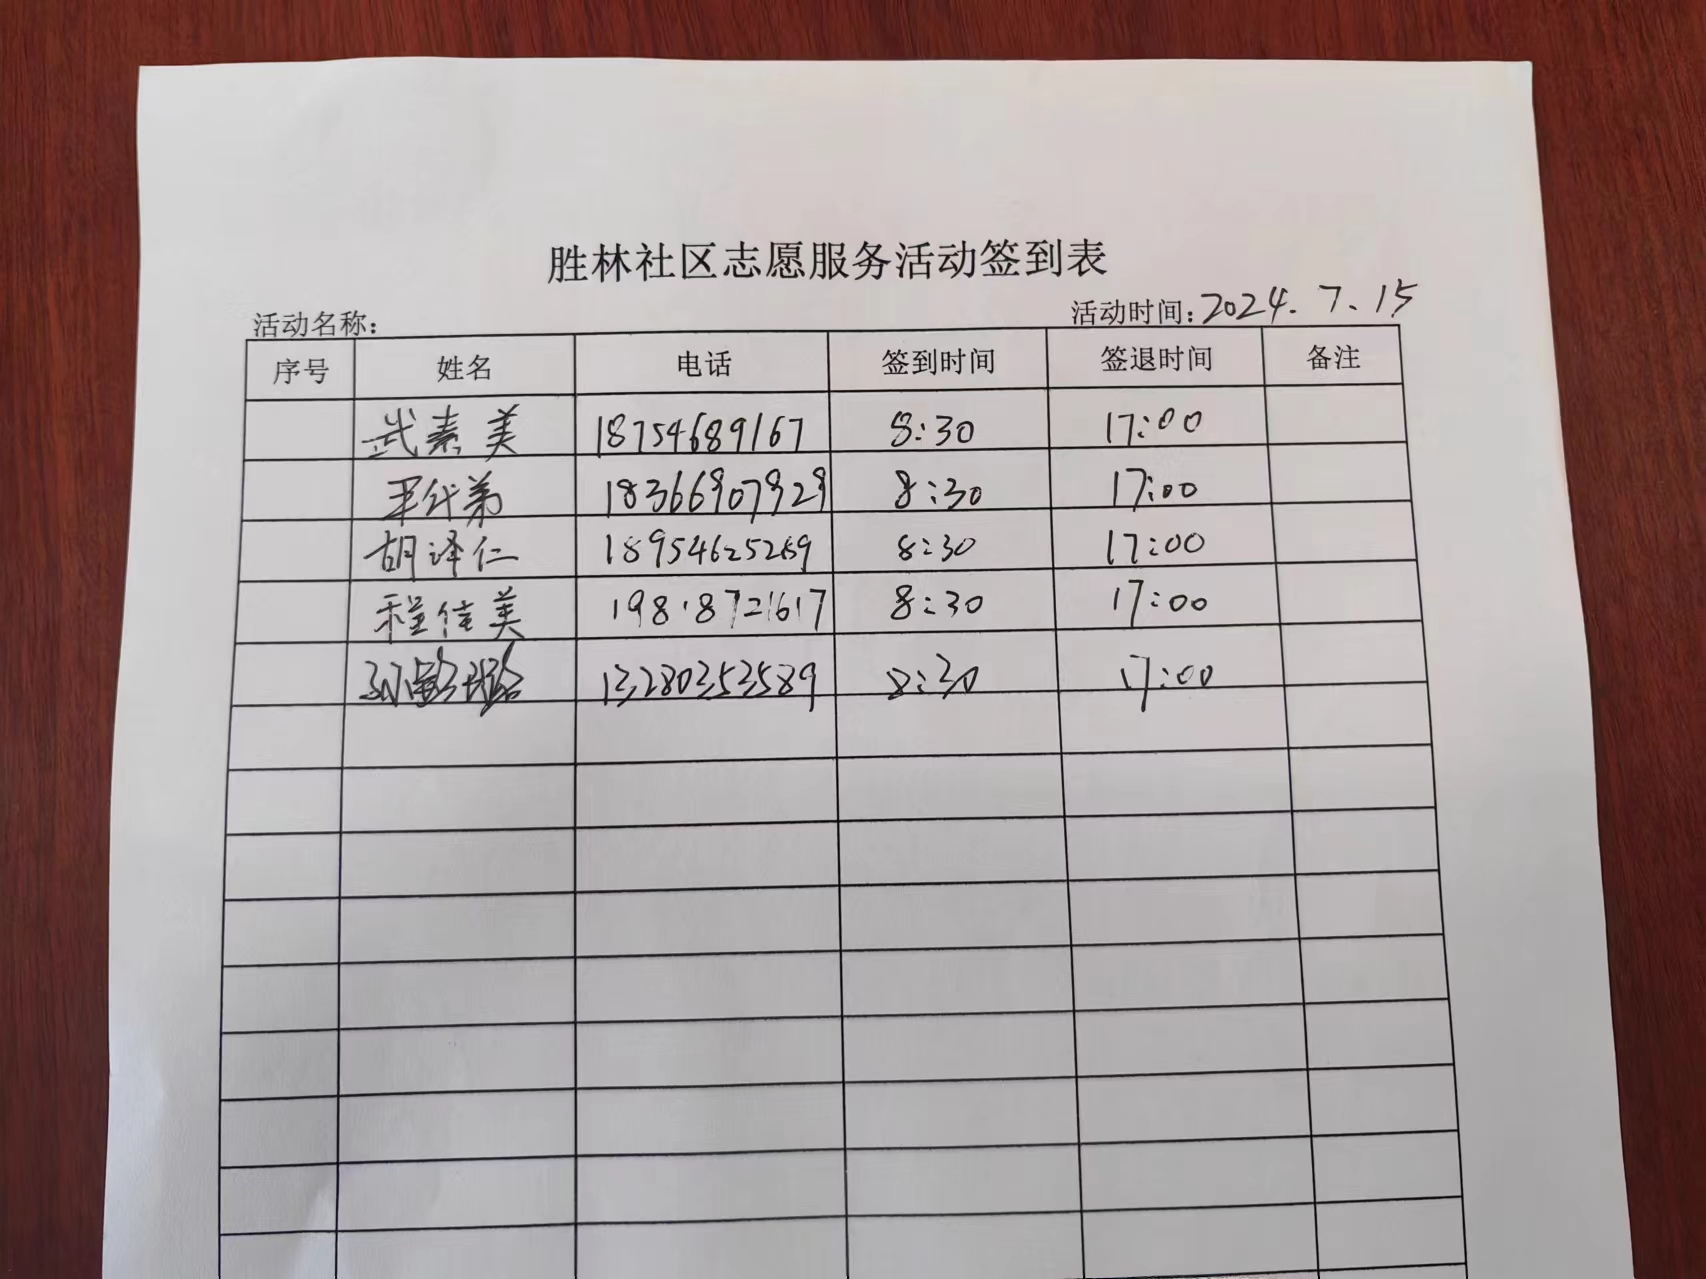 胜林社区志愿服务活动签到表
活动名称： 活动时间：2024.7.15
序号 姓名 电话 签到时间 签退时间 备注
武素美 18754689167 8:30 17:00
王代弟 18366907929 8:30 17:00
胡泽仁 18954625269 8:30 17:00
程佳美 19818721617 8:30 17:00
13280353589 8:30 17:00